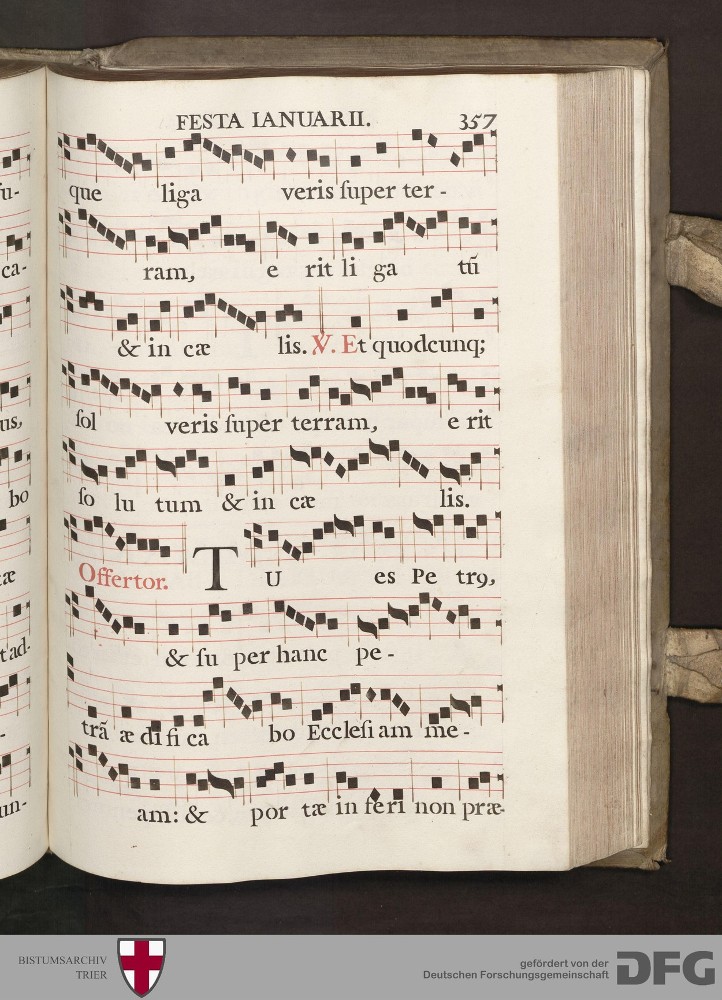 FESTA IANUARII. 357
que liga veris ſuper ter -
ram, e rit li ga tũ
& in cæ lis. ℣. Et quodcunq;
ſol veris ſuper terram, e rit
ſo lu tum & in cæ lis.
Offertor. TU es Pe trꝰ,
& ſu per hanc pe -
trã æ di fi ca bo Eccleſi am me -
am: & por tæ in feri non præ-
ca-
us,
bo
tæ
t ad-
un-
BISTUMSARCHIV
TRIER
gefördert von der
Deutschen Forschungsgemeinschaft
DFG